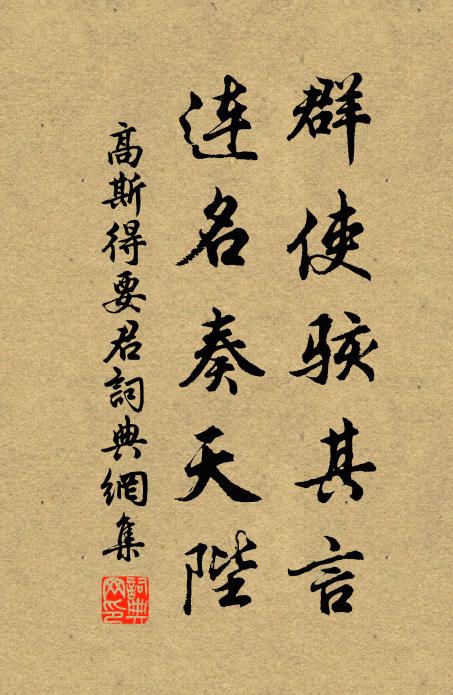 群使骇其言
连名奏天陛
高斯得要君詞典網集
詞典网印